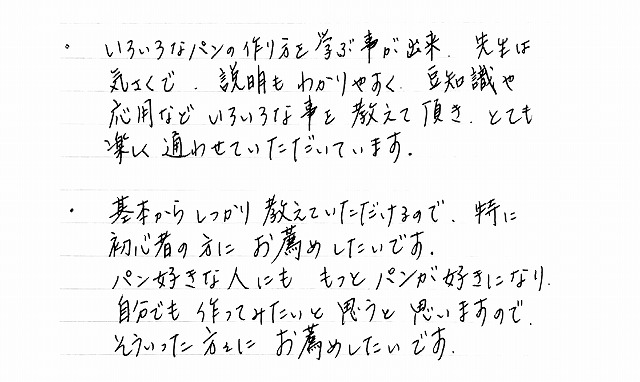 ・ いろいろなパンの作り方を学ぶ事が出来、先生は
気さくで、説明もわかりやすく、豆知識や
応用などいろいろな事を教えて頂き、とても
楽しく通わせていただいています。
・ 基本からしっかり教えていただけるので、特に
初心者の方にお薦めしたいです。
パン好きな人にももっとパンが好きになり、
自分でも作ってみたいと思うと思いますので、
そういった方々にお薦めしたいです。